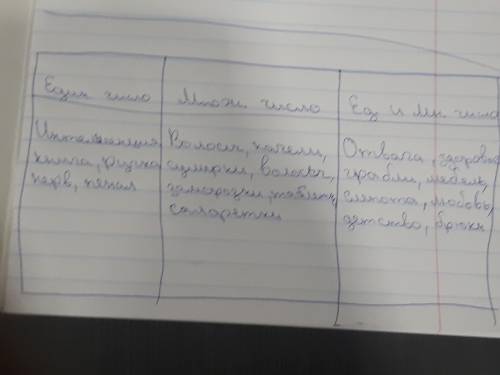 Един число
Множ. число
Ед и Мн. число
Интеллигенция,
книга, физика
нерв, пенал
Волосы, качели,
сумерки, волосы,
заморозки, таблетки,
сигаретки
Отвага, здоровье
грабли, мебель,
слепота, любовь,
детство, брюки